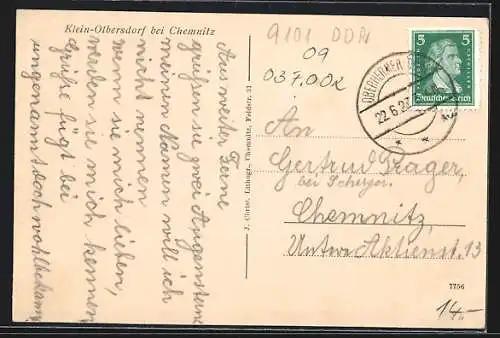 Klein-Olbersdorf bei Chemnitz
Aus weiter Ferne
grüßen sie zwei Augensterne
meinen Namen will ich
nicht nennen
wenn sie mich lieben,
würden sie mich kennen
Grüße fügt bei
ungenannt doch wohlbekannt
J. Christ. Lithogr. Chemnitz, Feldstr. 31
9101 DDR
09
037.00x
OBERLICHTENAU
22.6.29
5 5
Deutsches Reich
An
Gertrud Prager,
bei Scherzer.
Chemnitz,
Untere Aktienstr. 13
7756
14.-